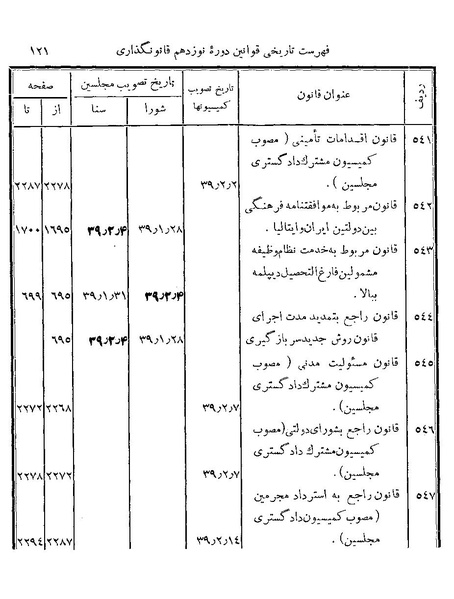 فهرست تاریخی قوانین دورهٔ نوزدهم قانونگذاری ۱۲۱
ردیف عنوان قانون تاریخ تصویب کمیسیونها تاریخ تصویب مجلسین صفحه
شورا سنا از تا
۵۴۱ قانون اقدامات تأمینی ( مصوب
کمیسیون مشترك دادگستری
مجلسین ) . ۳۹٫۲٫۲ ۲۲۷۸ ۲۲۸۷
۵۴۲ قانون مربوط به موافقتنامه فرهنگی
بین دولتین ایران و ایتالیا . ۳۹٫۱٫۲۸ ۳۹٫۲٫۴ ۱۶۹۵ ۱۷۰۰
۵۴۳ قانون مربوط به خدمت نظام وظیفه
مشمولین فارغ التحصیل دیپلمه
ببالا . ۳۹٫۲٫۴ ۳۹٫۱٫۳۱ ۶۹۵ ۶۹۹
۵۴۴ قانون راجع بتمدید مدت اجرای
قانون روش جدید سربازگیری ۳۹٫۱٫۲۸ ۳۹٫۲٫۴ ۶۹۵
۵۴۵ قانون مسئولیت مدنی ( مصوب
کمیسیون مشترك دادگستری
مجلسین ) . ۳۹٫۲٫۷ ۲۲۶۸ ۲۲۷۲
۵۴۶ قانون راجع بشورای دولتی (مصوب
کمیسیون مشترك دادگستری
مجلسین) . ۳۹٫۲٫۷ ۲۲۷۲ ۲۲۷۸
۵۴۷ قانون راجع به استرداد مجرمین
( مصوب کمیسیون دادگستری
مجلسین) . ۳۹٫۲٫۱۴ ۲۲۸۷ ۲۲۹۴